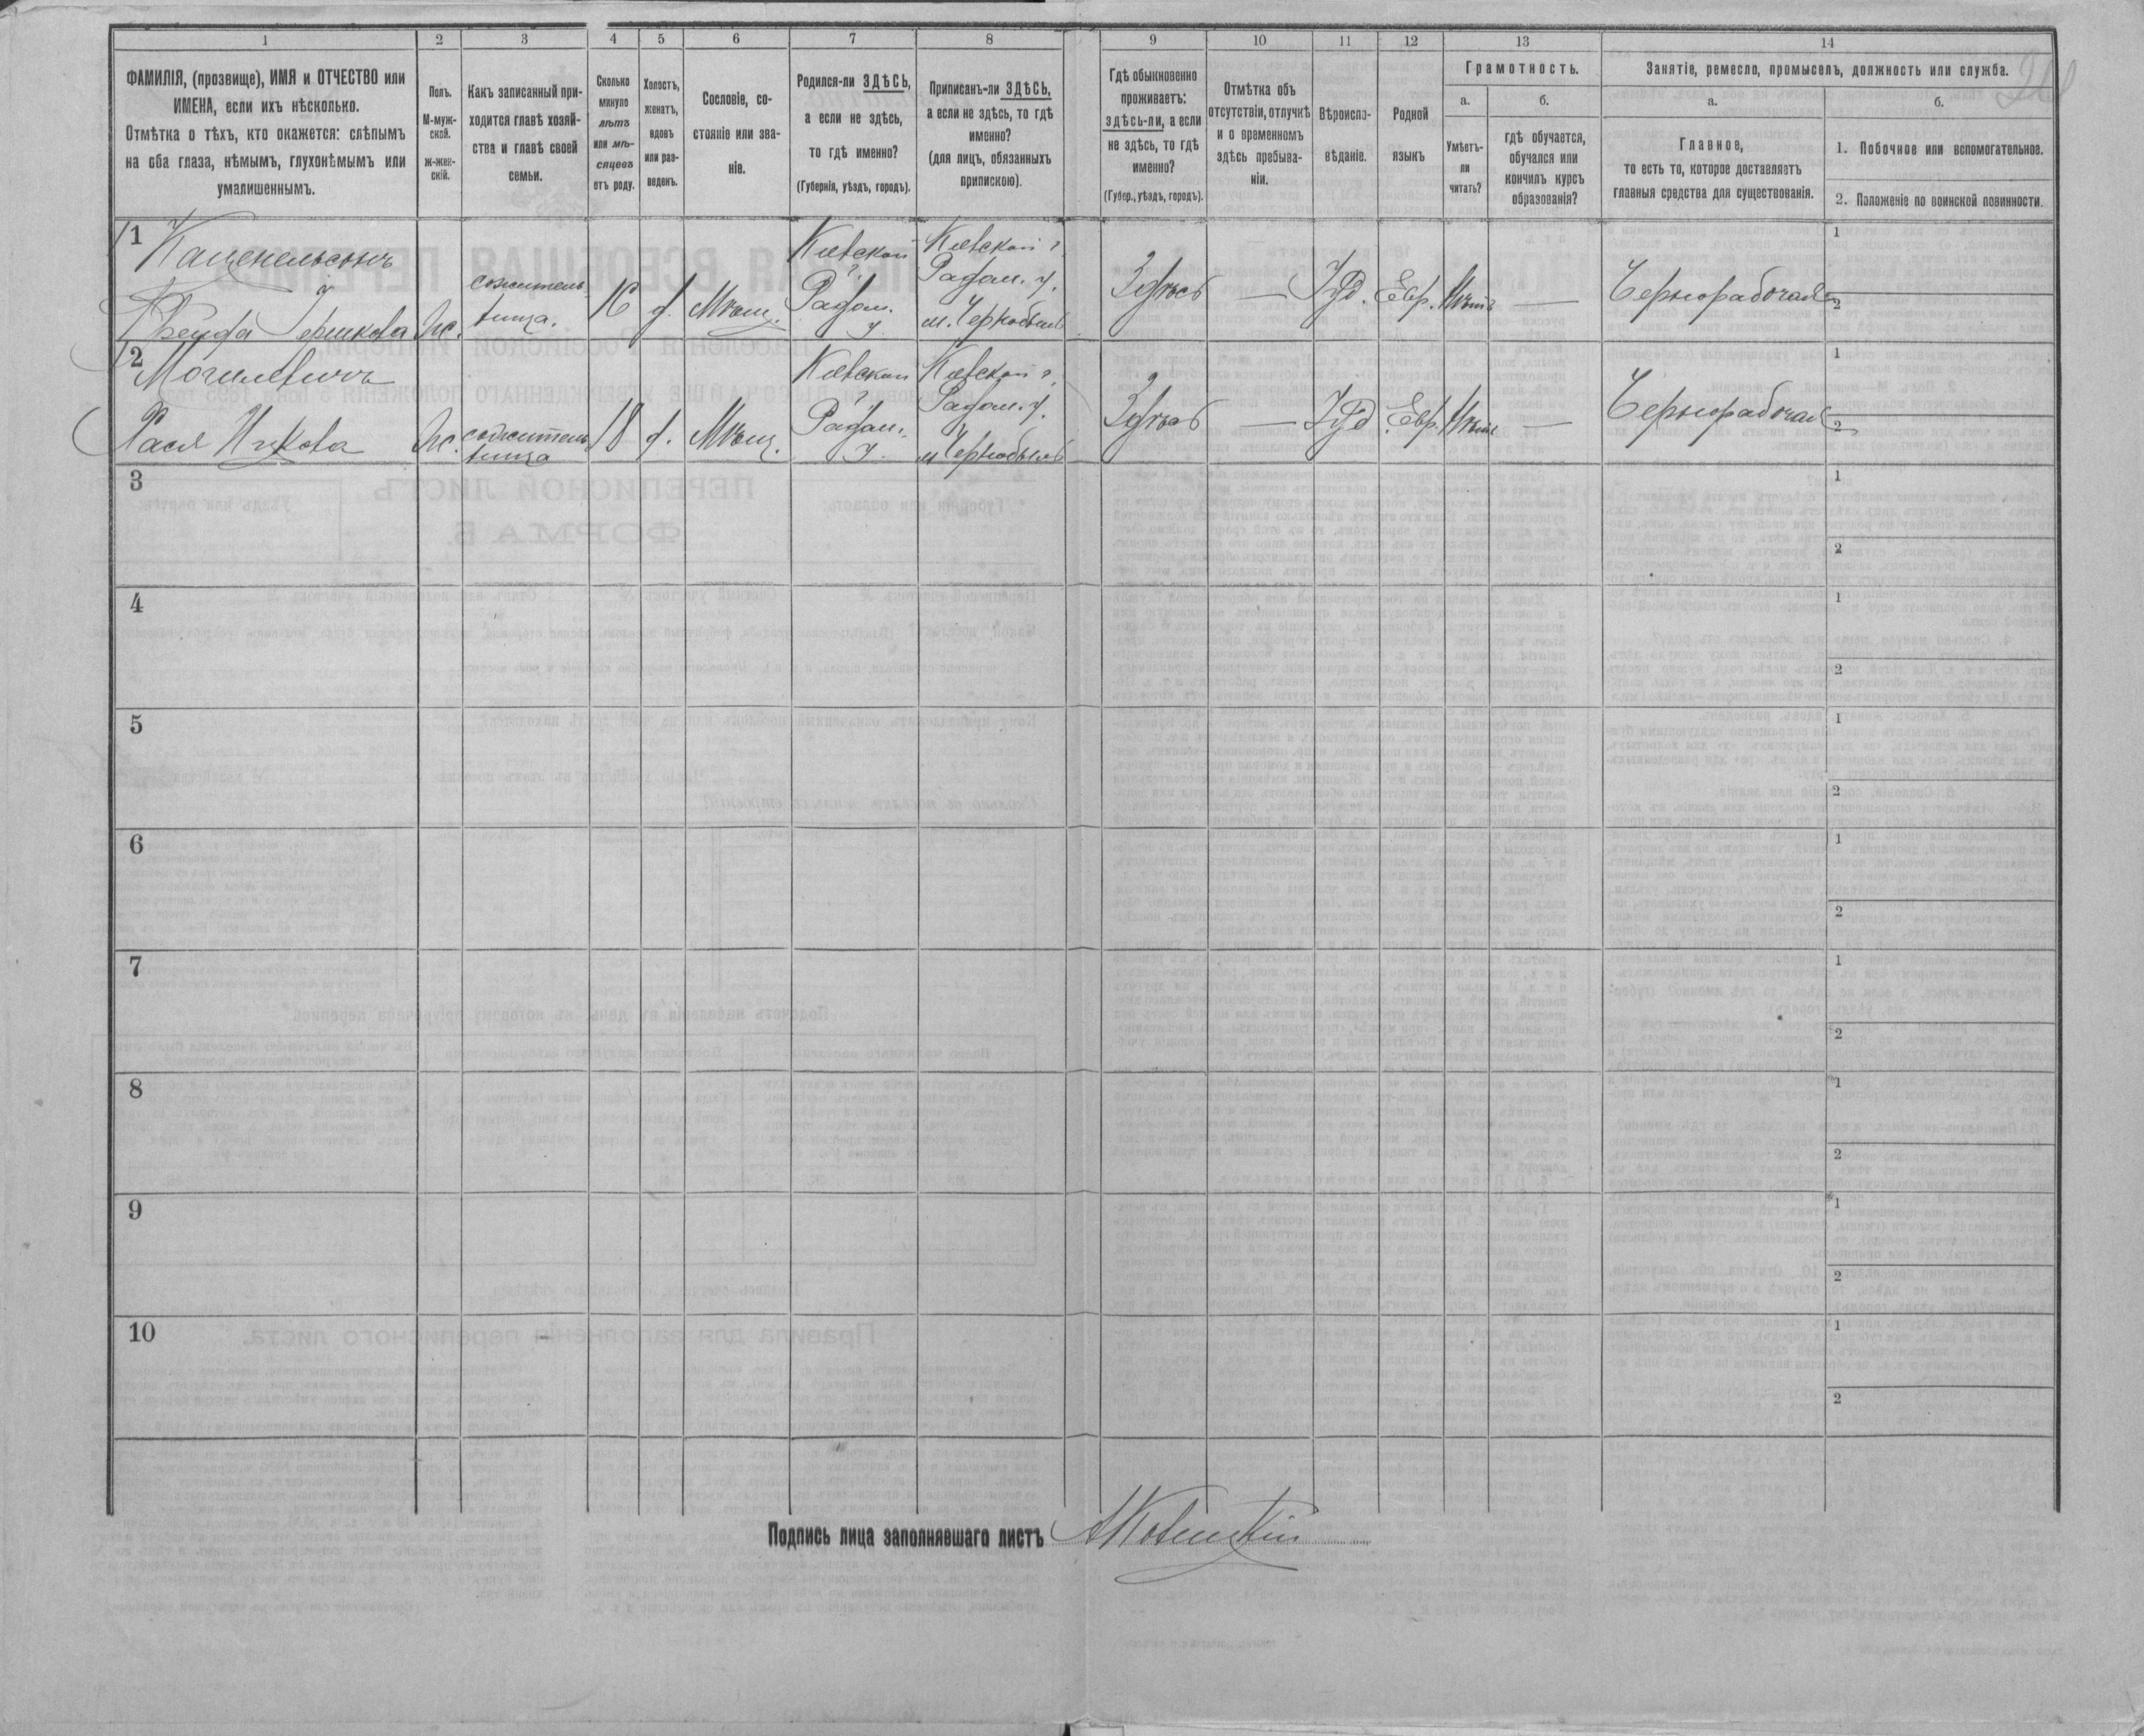 1 2 3 4 5 6 7 8 9 10 11 12 13 14
ФАМИЛІЯ, (прозвище), ИМЯ и ОТЧЕСТВО или
ИМЕНА, если ихъ нѣсколько.
Отмѣтка о тѣхъ, кто окажется: слѣпымъ
на оба глаза, нѣмымъ, глухонѣмымъ или
умалишеннымъ.
Полъ.
М-муж-
ской.
ж-жен-
скій.
Какъ записанный при-
ходится главѣ хозяй-
ства и главѣ своей
семьи.
Сколько
минуло
лѣтъ
или мѣ-
сяцевъ
отъ роду.
Холостъ,
женатъ,
вдовъ
или раз-
веденъ.
Сословіе, со-
стояніе или зва-
ніе.
Родился-ли ЗДѢСЬ,
а если не здѣсь,
то гдѣ именно?
(Губернія, уѣздъ, городъ).
Приписанъ-ли ЗДѢСЬ,
а если не здѣсь, то гдѣ
именно?
(для лицъ, обязанныхъ
припискою).
Гдѣ обыкновенно
проживаетъ:
здѣсь-ли, а если
не здѣсь, то гдѣ
именно?
(Губер., уѣздъ, городъ).
Отмѣтка объ
отсутствіи, отлучкѣ
и о временномъ
здѣсь пребыва-
ніи.
Вѣроиспо-
вѣданіе.
Родной
языкъ
Грамотность.
а.
Умѣетъ-
ли
читать?
б.
гдѣ обучается,
обучался или
кончилъ курсъ
образованія?
Занятіе, ремесло, промыселъ, должность или служба.
а.
Главное,
то есть то, которое доставляетъ
главныя средства для существованія.
б.
1. Побочное или вспомогательное.
2. Положеніе по воинской повинности.
1
Каценельсонъ
Гершкова
ж.
сожитель
ница.
16
д.
Мѣщ.
Кіевской
г.
Радом.
у.
Кіевской г.
Радом. у.
м. Чернобыль
Здѣсь
—
Іуд.
Евр.
Нѣтъ
—
Чернорабочая
1
2
2
Могилевичъ
Хася Ицкова
ж.
сожитель
ница
18
д.
Мѣщ.
Кіевской
г.
Радом.
у.
Кіевской г.
Радом. у.
м Чернобыль
Здѣсь
—
Іуд.
Евр.
Нѣтъ
—
Чернорабочая
1
2
3
1
2
4
1
2
5
1
2
6
1
2
7
1
2
8
1
2
9
1
2
10
1
2
Подпись лица заполнявшаго листъ